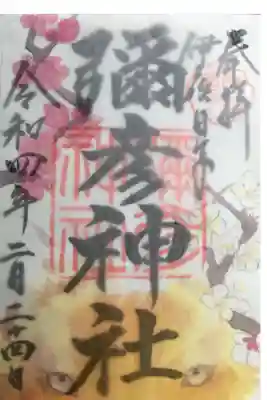 奉拝
伊夜日子
彌彦神社
令和四年二月二十四日